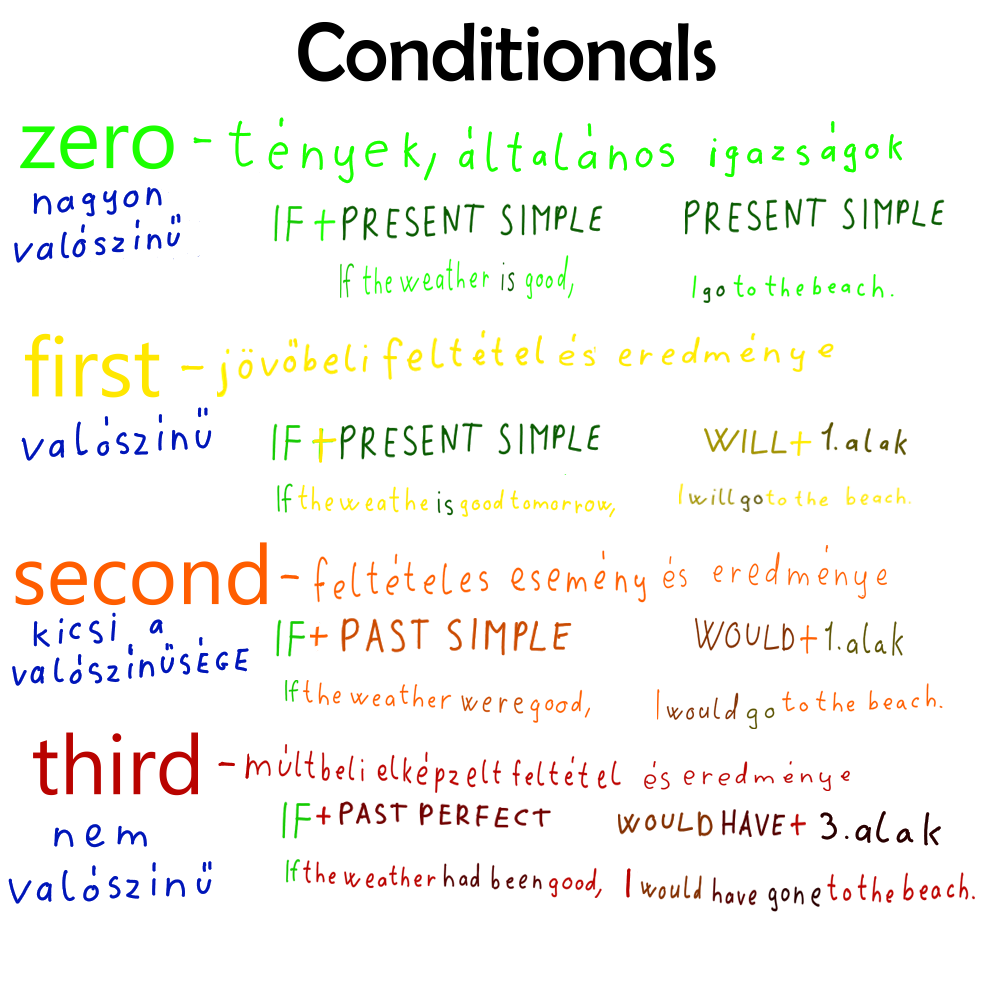 Conditionals
zero - tények, általános igazságok
nagyon
valószínű
IF + PRESENT SIMPLE PRESENT SIMPLE
If the weather is good, I go to the beach.
first - jövőbeli feltétel és eredménye
valószínű
IF + PRESENT SIMPLE WILL + 1. alak
If the weathe is good tomorrow, I will go to the beach.
second - feltételes esemény és eredménye
kicsi a
valószínűsÉGE
IF + PAST SIMPLE WOULD + 1. alak
If the weather were good, I would go to the beach.
third - múltbeli elképzelt feltétel és eredménye
nem
valószínű
IF + PAST PERFECT WOULD HAVE + 3. alak
If the weather had been good, I would have gone to the beach.